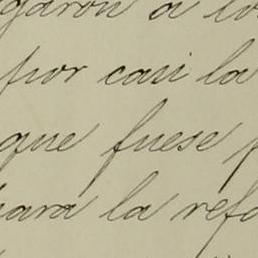 garon a lo
por casi la
que fuese p
para la refo